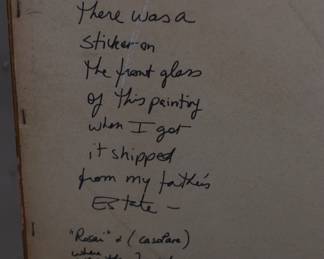 there was a
sticker on
the front glass
of this painting
when I got
it shipped
from my father's
Estate -
"Rosai" & (casolare)
where